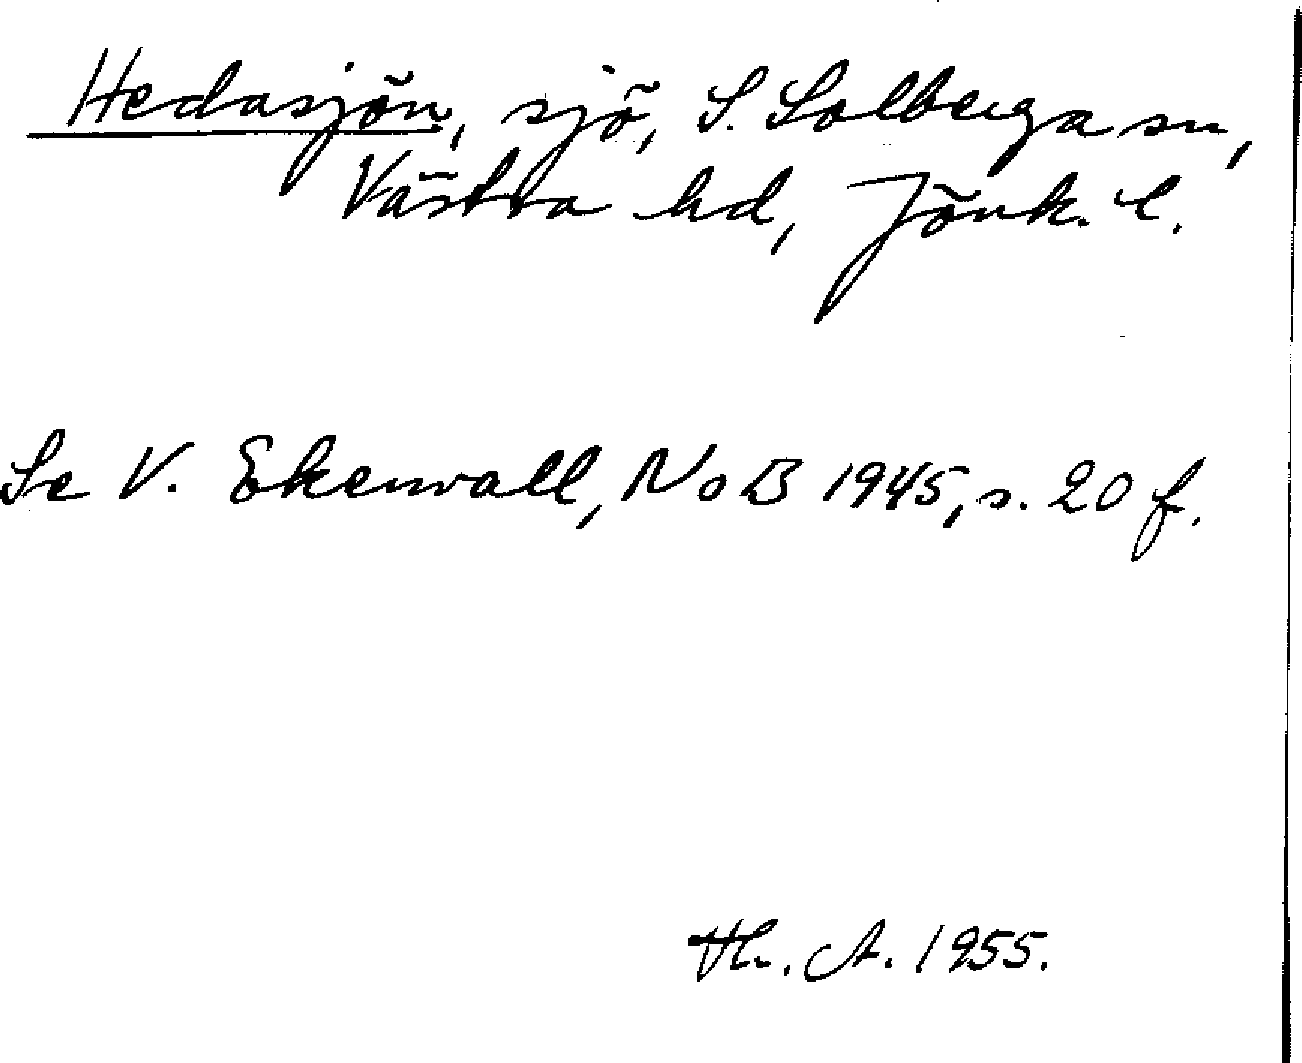 Hedasjön, sjö, S. Solberga sn,
Västra hd, Jönk. l.
Se V. Ekenvall, NoB 1945, s. 20 f.
Th. A. 1955.